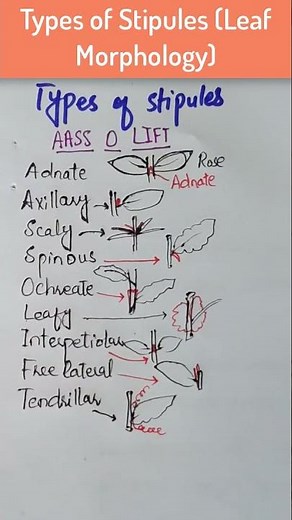 Types of Stipules (Leaf
Morphology)
Types of stipules
AASS O LIFT
Adnate
Rose
Adnate
Axillary
Scaly
Spinous
Ochreate
Leafy
Interpetiolar
Free lateral
Tendrillar